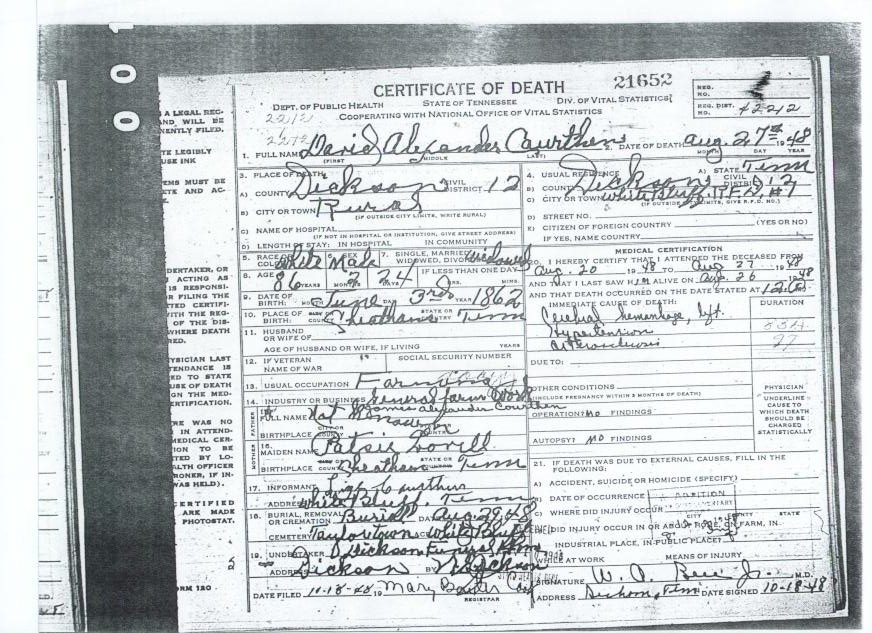 001
CERTIFICATE OF DEATH 21652
DEPT. OF PUBLIC HEALTH STATE OF TENNESSEE DIV. OF VITAL STATISTICS
COOPERATING WITH NATIONAL OFFICE OF VITAL STATISTICS
REG. NO.
REG. DIST. NO. 42212
1. FULL NAME David Alexander Cawthen
(FIRST) MIDDLE LAST)
2. DATE OF DEATH Aug. 27th 1948
MONTH DAY YEAR
3. PLACE OF DEATH
A) COUNTY Dickson CIVIL DISTRICT 12
B) CITY OR TOWN Rural
(IF OUTSIDE CITY LIMITS, WRITE RURAL)
C) NAME OF HOSPITAL
(IF NOT IN HOSPITAL OR INSTITUTION, GIVE STREET ADDRESS)
D) LENGTH OF STAY: IN HOSPITAL IN COMMUNITY
4. USUAL RESIDENCE A) STATE Tenn
B) COUNTY Dickson CIVIL DISTRICT 12
C) CITY OR TOWN White Bluff, R.F.D. #1
(IF OUTSIDE CITY LIMITS, GIVE R.F.D. NO.)
D) STREET NO.
E) CITIZEN OF FOREIGN COUNTRY (YES OR NO)
IF YES, NAME COUNTRY
5. RACE OR COLOR White 6. SEX Male 7. SINGLE, MARRIED, WIDOWED, DIVORCED Widowed
8. AGE 86 YEARS 2 MONTHS 24 DAYS IF LESS THAN ONE DAY HRS. MINS.
9. DATE OF BIRTH: MONTH June DAY 3rd YEAR 1862
10. PLACE OF BIRTH: COUNTY Cheatham STATE OR COUNTRY Tenn
11. HUSBAND OR WIFE OF
AGE OF HUSBAND OR WIFE, IF LIVING YEARS
12. IF VETERAN NAME OF WAR SOCIAL SECURITY NUMBER
13. USUAL OCCUPATION Farming
14. INDUSTRY OR BUSINESS General farm Work
FATHER 15. FULL NAME James Alexander Courthen
BIRTHPLACE CITY OR COUNTY
MOTHER 16. MAIDEN NAME Patsie Lovell
BIRTHPLACE COUNTY Cheatham STATE OR COUNTRY Tenn
17. INFORMANT
ADDRESS White Bluff, Tenn
18. BURIAL, REMOVAL OR CREMATION Burial DATE Aug 29, 48
CEMETERY Taylortown White Bluff
19. UNDERTAKER Dickson Funeral Home
ADDRESS Dickson BY
DATE FILED 10-18-48 19 Mary
REGISTRAR
MEDICAL CERTIFICATION
20. I HEREBY CERTIFY THAT I ATTENDED THE DECEASED FROM
Aug. 20 1948 TO Aug 27 1948
AND THAT I LAST SAW HIM ALIVE ON Aug 26 1948
AND THAT DEATH OCCURRED ON THE DATE STATED AT
IMMEDIATE CAUSE OF DEATH: DURATION
Cerebral hemorrhage, lft.
Hypertension
Arteriosclerosis
DUE TO:
OTHER CONDITIONS
(INCLUDE PREGNANCY WITHIN 3 MONTHS OF DEATH)
OPERATION? No FINDINGS
AUTOPSY? No FINDINGS
PHYSICIAN
UNDERLINE
CAUSE TO
WHICH DEATH
SHOULD BE
CHARGED
STATISTICALLY
21. IF DEATH WAS DUE TO EXTERNAL CAUSES, FILL IN THE FOLLOWING:
A) ACCIDENT, SUICIDE OR HOMICIDE (SPECIFY)
B) DATE OF OCCURRENCE
C) WHERE DID INJURY OCCUR
CITY COUNTY STATE
DID INJURY OCCUR IN OR ABOUT HOME, ON FARM, IN
INDUSTRIAL PLACE, IN PUBLIC PLACE?
WHILE AT WORK MEANS OF INJURY
SIGNATURE M.D.
ADDRESS Dickson, Tenn DATE SIGNED 10-18-48
A LEGAL REC-
AND WILL BE
NENTLY FILED.
TE LEGIBLY
USE INK
EMS MUST BE
ETE AND AC-
DERTAKER, OR
ACTING AS
IS RESPONSI-
R FILING THE
TED CERTIFI-
ITH THE REG-
OF THE DIS-
WHERE DEATH
RED.
YSICIAN LAST
TENDANCE IS
ED TO STATE
USE OF DEATH
GN THE MED-
ERTIFICATION.
RE WAS NO
IN ATTEND-
MEDICAL CER-
ION TO BE
TED BY LO-
ALTH OFFICER
RONER, IF IN-
WAS HELD).
CERTIFIED
ARE MADE
PHOTOSTAT.
RM 120